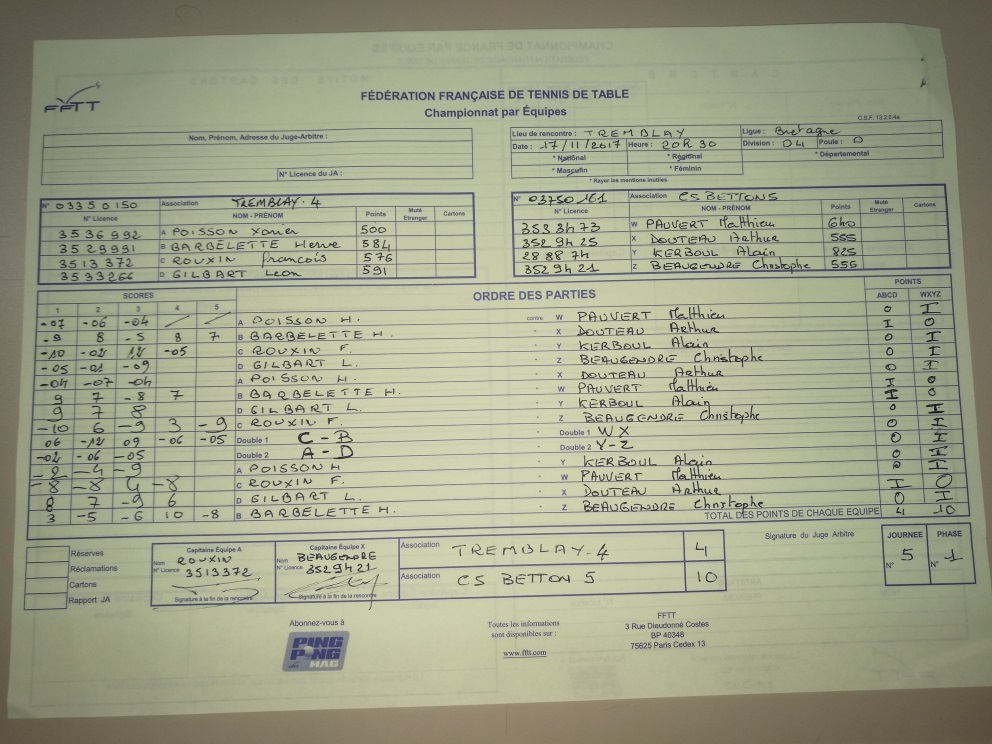 FFTT
FÉDÉRATION FRANÇAISE DE TENNIS DE TABLE
Championnat par Équipes
C.S.F. 13.2.0-4a
Nom, Prénom, Adresse du Juge-Arbitre :
N° Licence du JA :
Lieu de rencontre : TREMBLAY Ligue : Bretagne
Date : 17/11/2017 Heure : 20h30 Division : D4 Poule : D
* National * Régional * Départemental
* Masculin * Féminin
* Rayer les mentions inutiles
N° 03350150 Association TREMBLAY-4
N° Licence NOM - PRÉNOM Points Muté Etranger Cartons
3536992 A POISSON Xavier 500
3529991 B BARBELETTE Herve 584
3513372 C ROUXIN François 576
3533266 D GILBART Leon 591
N° 03750161 Association CS BETTONS
N° Licence NOM - PRÉNOM Points Muté Etranger Cartons
3533473 W PAUVERT Matthieu 640
3529425 X DOUTEAU Arthur 555
288874 Y KERBOUL Alain 825
3529421 Z BEAUGENDRE Christophe 555
SCORES ORDRE DES PARTIES POINTS
1 2 3 4 5 ABCD WXYZ
-07 -06 -04 / / A POISSON H. contre W PAUVERT Matthieu 0 I
-9 8 -5 8 7 B BARBELETTE H. " X DOUTEAU Arthur I 0
-10 -02 12 -05 C ROUXIN F. " Y KERBOUL Alain 0 I
-05 -01 -09 D GILBART L. " Z BEAUGENDRE Christophe 0 I
-04 -07 -04 A POISSON H. " X DOUTEAU Arthur 0 I
9 7 -8 7 B BARBELETTE H. " W PAUVERT Matthieu I 0
9 7 8 D GILBART L. " Y KERBOUL Alain I 0
-10 6 -9 3 -9 C ROUXIN F. " Z BEAUGENDRE Christophe 0 I
06 -12 09 -06 -05 Double 1 C - B " Double 1 W X 0 I
-02 -06 -05 Double 2 A - D " Double 2 Y-Z 0 I
-4 -9 A POISSON H " Y KERBOUL Alain 0 I
-8 -8 4 -8 C ROUXIN F. " W PAUVERT Matthieu 0 I
8 7 -9 6 D GILBART L. " X DOUTEAU Arthur I 0
3 -5 -6 10 -8 B BARBELETTE H. " Z BEAUGENDRE Christophe 0 I
TOTAL DES POINTS DE CHAQUE EQUIPE 4 10
Réserves
Réclamations
Cartons
Rapport JA
Capitaine Equipe A
Nom ROUXIN
N° Licence 3513372
Signature à la fin de la rencontre
Capitaine Equipe X
Nom BEAUGENDRE
N° Licence 3529421
Signature à la fin de la rencontre
Association TREMBLAY-4 4
Association CS BETTON 5 10
Signature du Juge Arbitre
JOURNEE PHASE
N° 5 N° 1
Abonnez-vous à
PING PONG MAG
Toutes les informations
sont disponibles sur :
www.fftt.com
FFTT
3 Rue Dieudonné Costes
BP 40348
75625 Paris Cedex 13